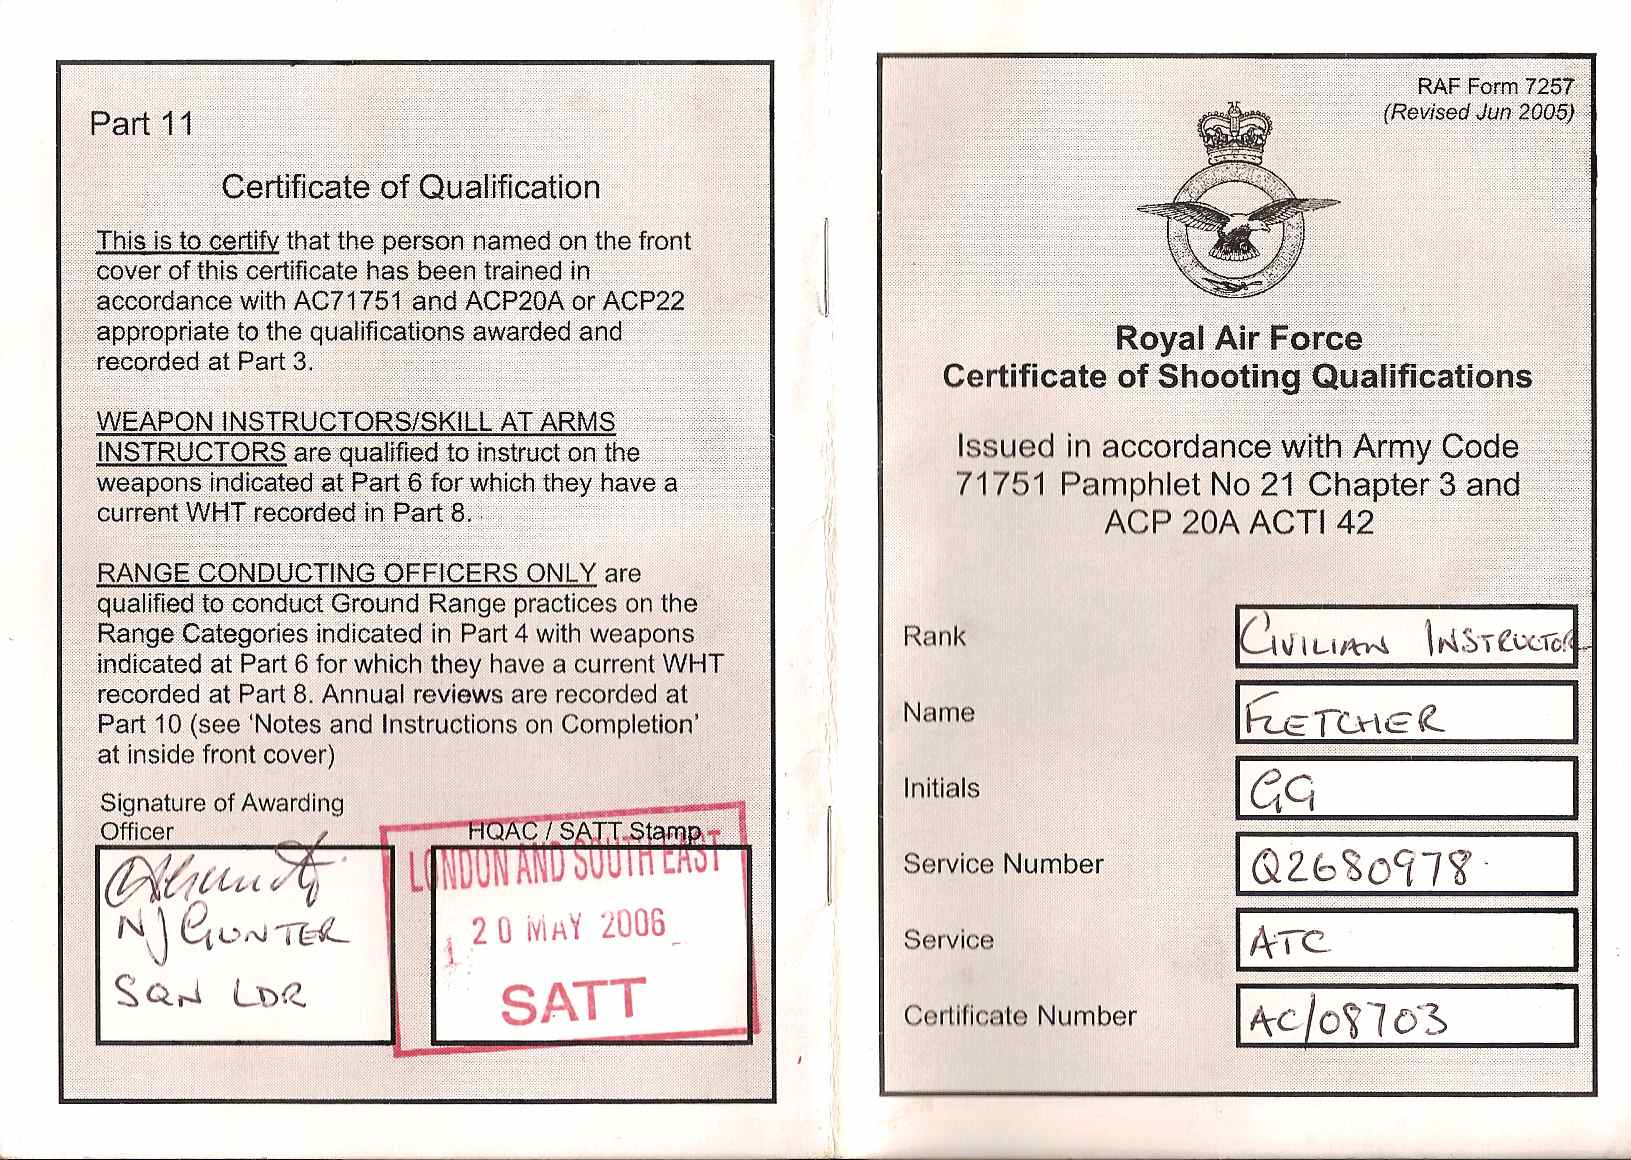 Part 11
Certificate of Qualification
This is to certify that the person named on the front
cover of this certificate has been trained in
accordance with AC71751 and ACP20A or ACP22
appropriate to the qualifications awarded and
recorded at Part 3.
WEAPON INSTRUCTORS/SKILL AT ARMS
INSTRUCTORS are qualified to instruct on the
weapons indicated at Part 6 for which they have a
current WHT recorded in Part 8.
RANGE CONDUCTING OFFICERS ONLY are
qualified to conduct Ground Range practices on the
Range Categories indicated in Part 4 with weapons
indicated at Part 6 for which they have a current WHT
recorded at Part 8. Annual reviews are recorded at
Part 10 (see ‘Notes and Instructions on Completion’
at inside front cover)
Signature of Awarding
Officer
HQAC / SATT Stamp
NJ GUNTER
SQN LDR
LONDON AND SOUTH EAST
20 MAY 2006
SATT
RAF Form 7257
(Revised Jun 2005)
Royal Air Force
Certificate of Shooting Qualifications
Issued in accordance with Army Code
71751 Pamphlet No 21 Chapter 3 and
ACP 20A ACTI 42
Rank CIVILIAN INSTRUCTOR
Name FLETCHER
Initials GG
Service Number Q2680978
Service ATC
Certificate Number AC/08703